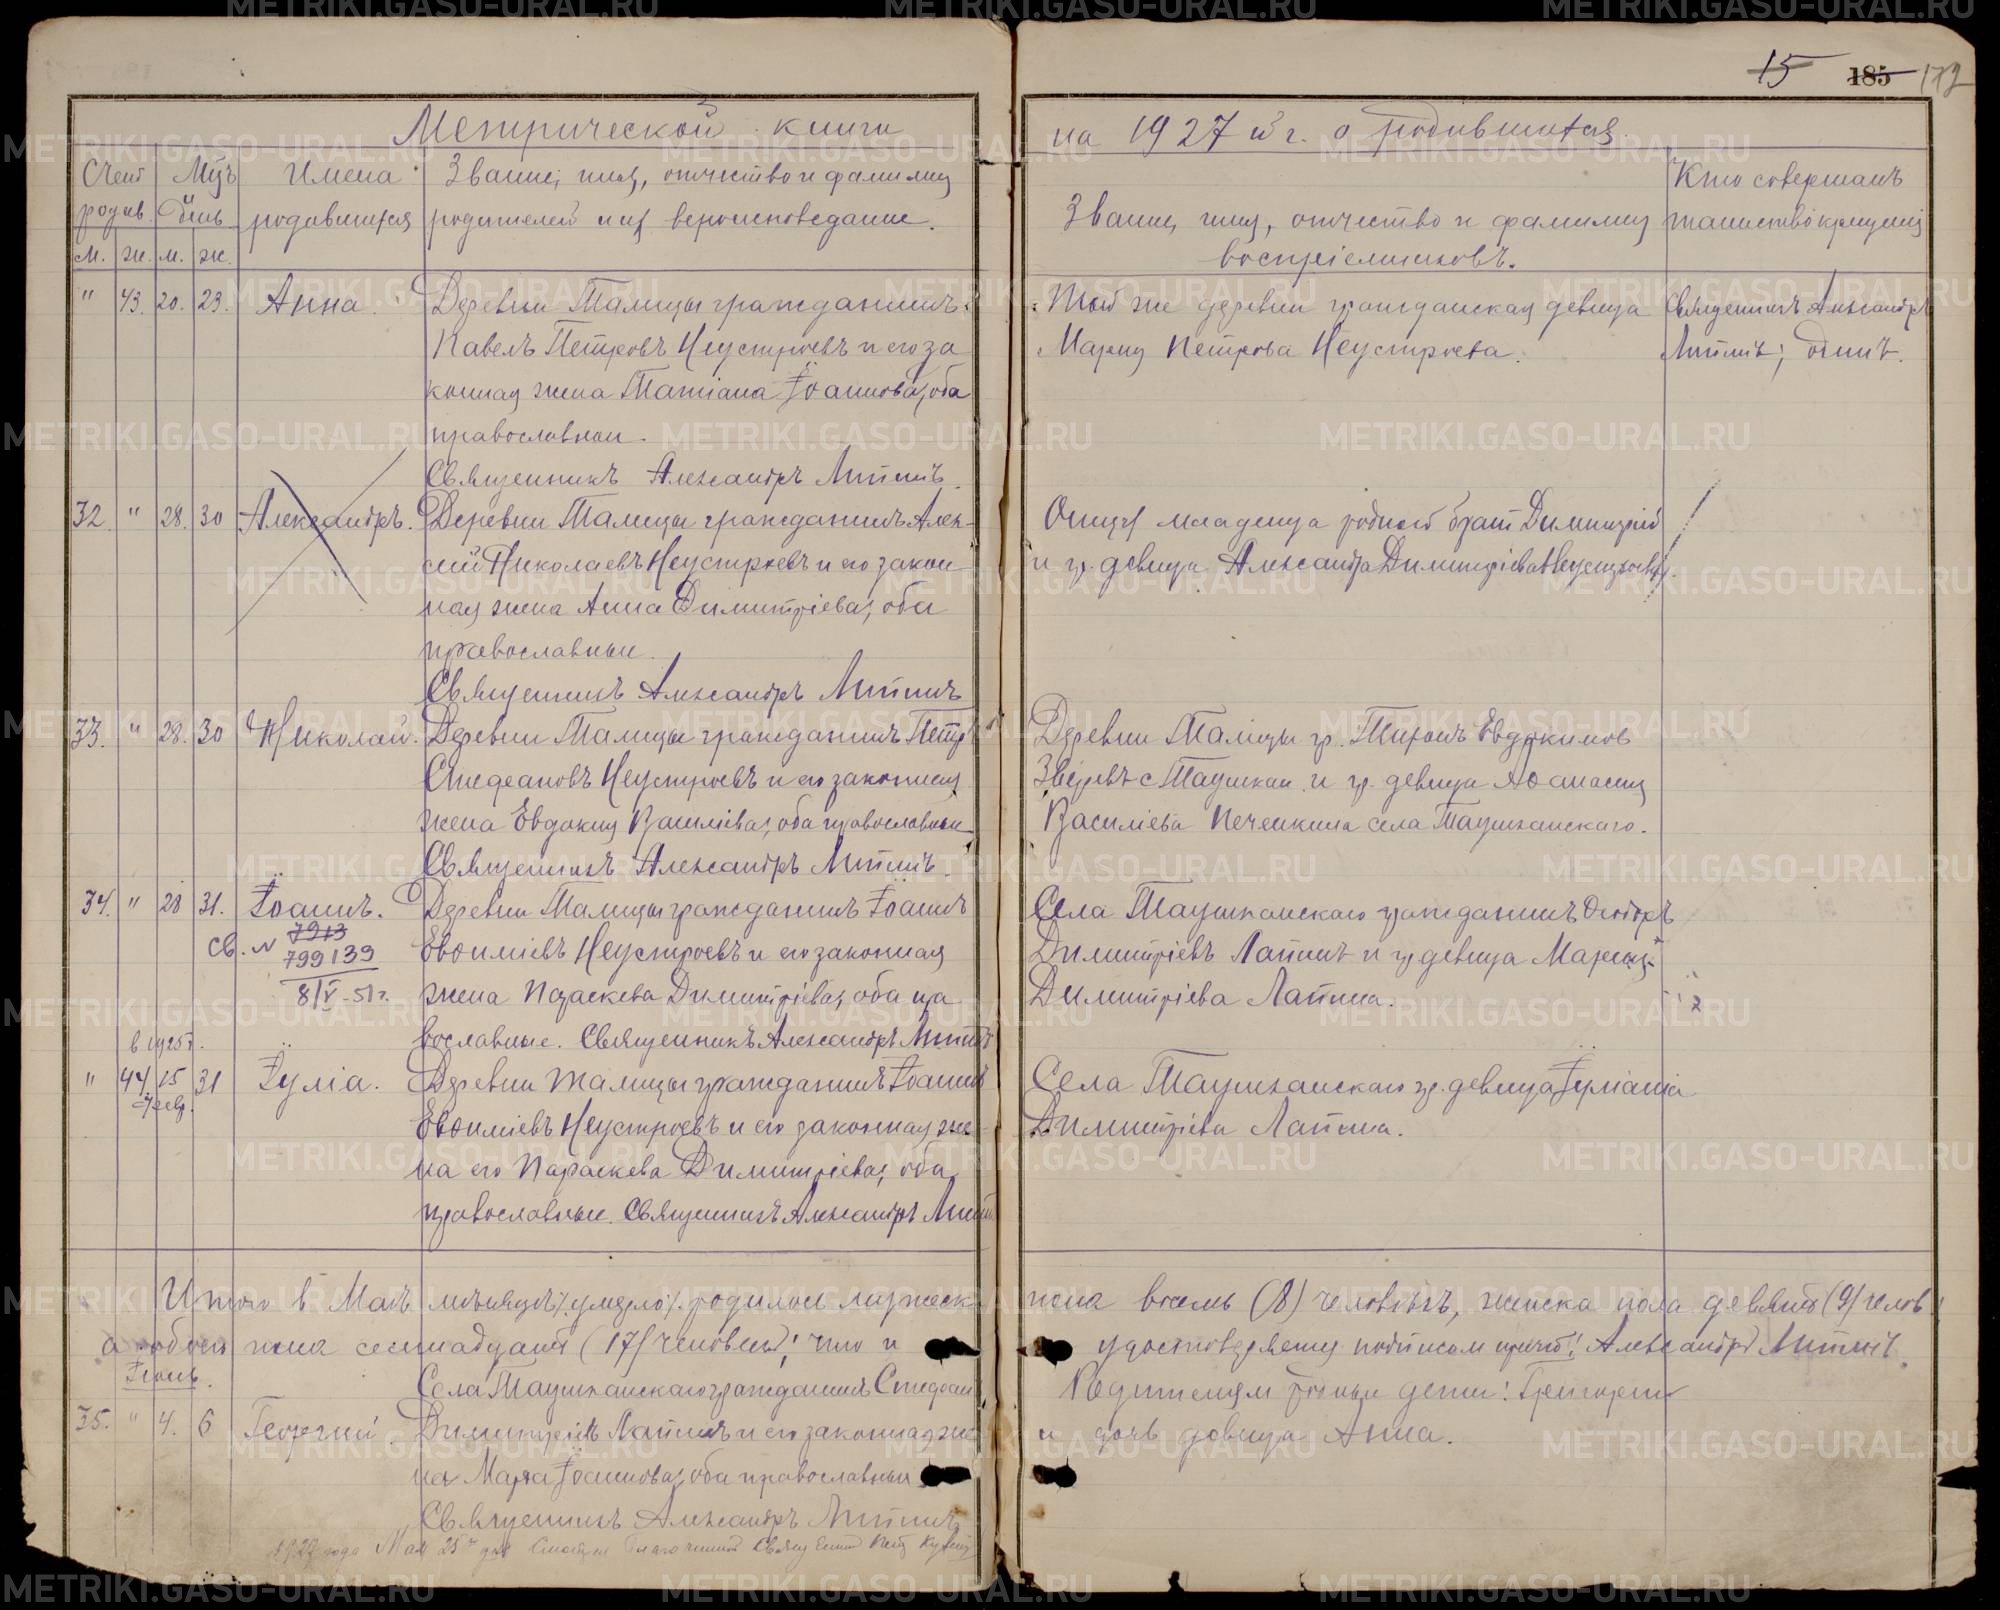 15 185 172
Метрической книги
на 1927 й г. о родившихся.
Счет родив. Мѣс. день
м. ж. м. ж.
Имена родившихся
Званіе, имя, отчество и фамилия
родителей и их вероисповедание.
Званіе, имя, отчество и фамилия
воспріемниковъ.
Кто совершалъ
таинство крещенія
" 43. 20. 23. Анна.
Деревни Талицы гражданинъ
Павелъ Петровъ Неустроевъ и его за
конная жена Татіана Іоаннова, оба
православнои.
Священникъ Александръ
Той же деревни гражданская девица
Мария Петрова Неустроева.
Священникъ Александръ
одинъ.
32. " 28. 30 Александръ.
Деревни Талицы гражданинъ Алек-
сий Николаевъ Неустроевъ и его закон
ная жена Анна Димитріева, оба
православныи.
Священникъ Александръ
Отцу младенца родной брат Димитрій
и гр. девица Александра Димитріева Неустроева.
33. " 28. 30 Николай.
Деревни Талицы гражданинъ Петр
Стефановъ Неустроевъ и его законная
жена Евдокия Василіева, оба православныи
Священникъ Александръ
Деревни Талицы гр. Тихонъ Евдокимов
Звѣревъ с Таушкан. и гр. девица Афанасия
Василіева Печенкина села Таушканскаго.
34. " 28 31. Іоаннъ.
св. N 7913
799139
8/V-51 г.
Деревни Талицы гражданинъ Іоаннъ
Евфиміевъ Неустроевъ и его законная
жена Параскева Димитріева, оба пра
вославные. Священникъ Александръ
Села Таушканскаго гражданинъ Феодоръ
Димитріевъ Лапинъ и гр девица Мария
Димитріева Лапина.
в 1925 г.
" 44. 15 31 Іуліа.
февр.
Деревни Талицы гражданинъ Іоаннъ
Евфиміевъ Неустроевъ и его законная же
на его Параскева Димитріева, оба
православные. Священникъ Александръ
Села Таушканскаго гр. девица Іуліанія
Димитріева Лапина.
Итого в Маѣ мѣсяцѣ /умерло/ родилось мужеск
пола восемь (8) человѣкъ, женска пола девять (9) челов
а обоего пола семнадцать (17) человекъ; что и
удостоверяем подписом причт: Александръ
Іюнь.
35. " 4. 6 Георгий.
Села Таушканскаго гражданинъ Стефан
Димитріевъ Лапинъ и его законная же
на Марѳа Іоаннова, оба православныи
Священникъ Александръ
Родителям родныи дети: Григорий
и дочь девица Анна.
1927 года Мая 25го дня Смотрел Благочинный Священ